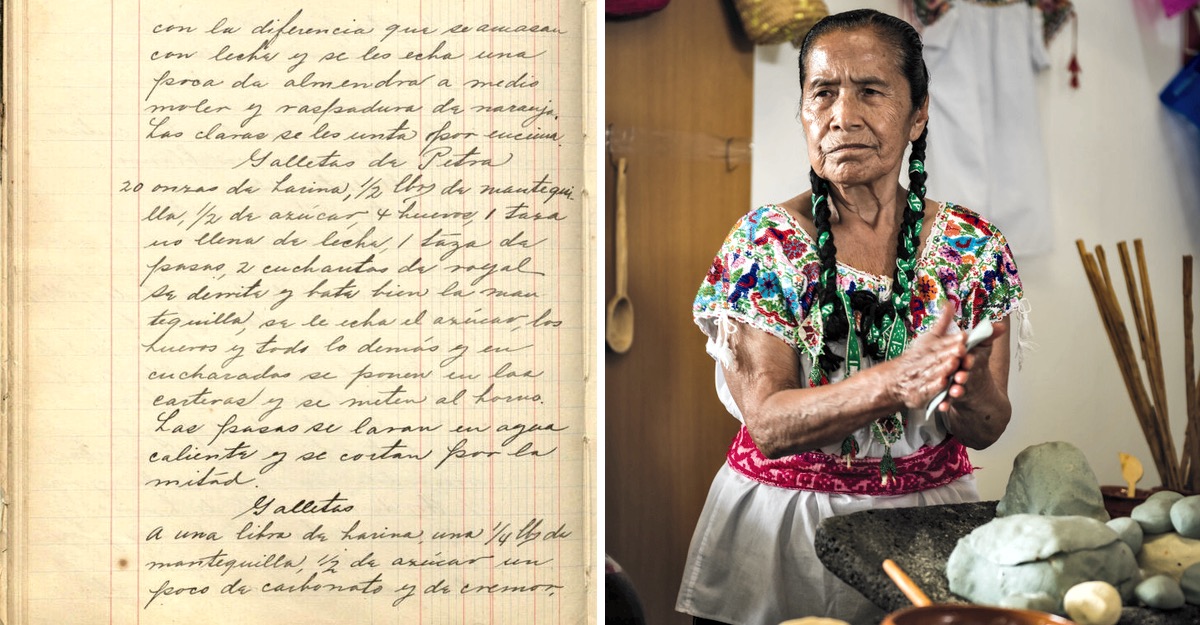 con la diferencia que se amasan
con leche y se les echa una
poca de almendra a medio
moler y raspadura de naranja.
Las claras se les unta por encima.
Galletas de Petra
20 onzas de harina, 1/2 lbs de mantequi-
lla, 1/2 de azúcar, 4 huevos, 1 taza
no llena de leche, 1 taza de
pasas, 2 cucharitas de royal
Se derrite y bate bien la man
tequilla, se le echa el azúcar, los
huevos y todo lo demás y en
cucharadas se ponen en las
carteras y se meten al horno.
Las pasas se lavan en agua
caliente y se cortan por la
mitad.
Galletas
A una libra de harina una 1/4 lbs de
mantequilla, 1/2 de azúcar un
poco de carbonato y de cremor,